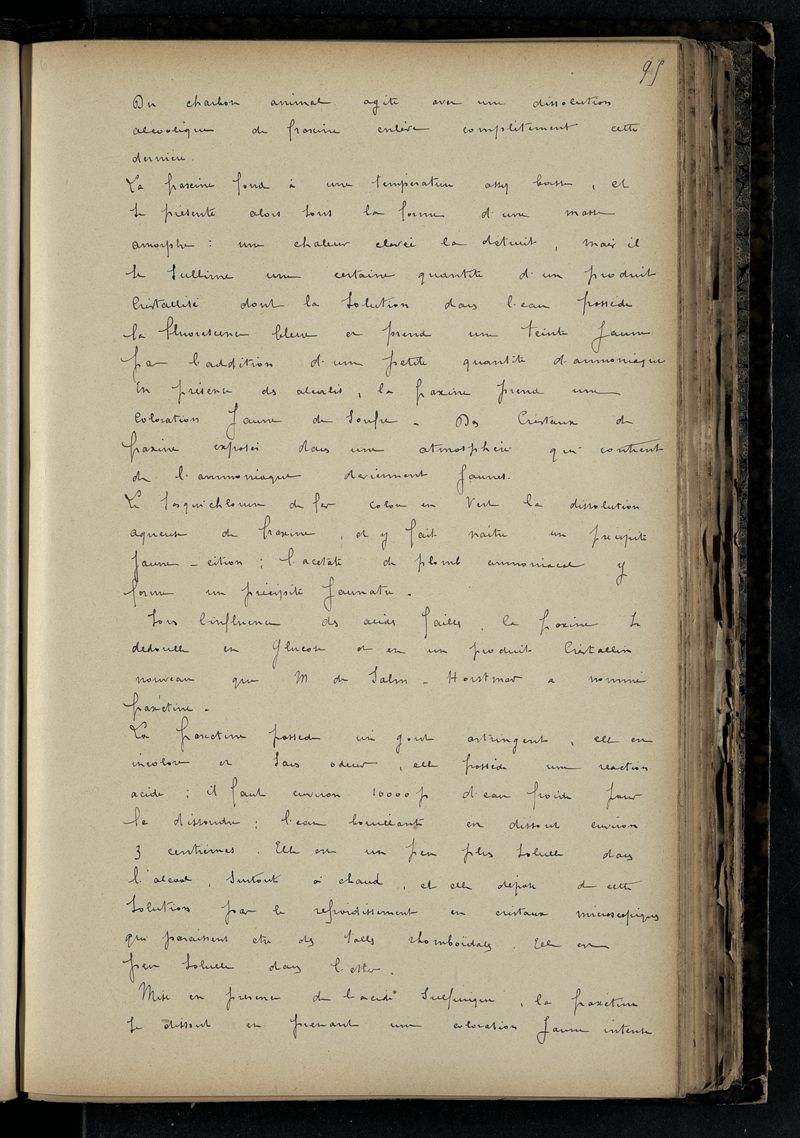 95
Du charbon animal agité avec une dissolution
alcoolique de fraxine enlève complètement cette
dernière.
La fraxine fond à une température assez basse, et
se présente alors sous la forme d'une masse
amorphe : une chaleur élevée la détruit, mais il
se sublime une certaine quantité d'un produit
cristallisé dont la solution dans l'eau possède
la fluorescence bleue et prend une teinte jaune
par l'addition d'une petite quantité d'ammoniaque
En présence des alcalis, la fraxine prend une
coloration jaune de soufre - Des cristaux de
fraxine exposés dans une atmosphère qui contient
de l'ammoniaque deviennent jaunes.
Le sesquichlorure de fer colore en vert la dissolution
aqueuse de fraxine, et y fait naître un précipité
jaune-citron ; l'acétate de plomb ammoniacal y
forme un précipité jaunatre.
Sous l'influence des acides faibles, la fraxine se
dedouble en glucose et en un produit cristallin
nouveau que M de Salm-Horstmar a nommé
fraxétine -
La fraxétine possède un gout astringent, elle est
incolore et sans odeur, elle possède une réaction
acide ; il faut environ 10000 p d'eau froide pour
la dissoudre ; l'eau bouillante en dissout environ
3 centièmes. Elle est un peu plus soluble dans
l'alcool, surtout à chaud, et elle dépose de cette
solution par le refroidissement en cristaux microscopiques
qui paraissent etre des tables rhomboïdales. Elle est
peu soluble dans l'ether.
Mise en présence de l'acide sulfurique, la fraxétine
se dissout en prenant une coloration jaune intense